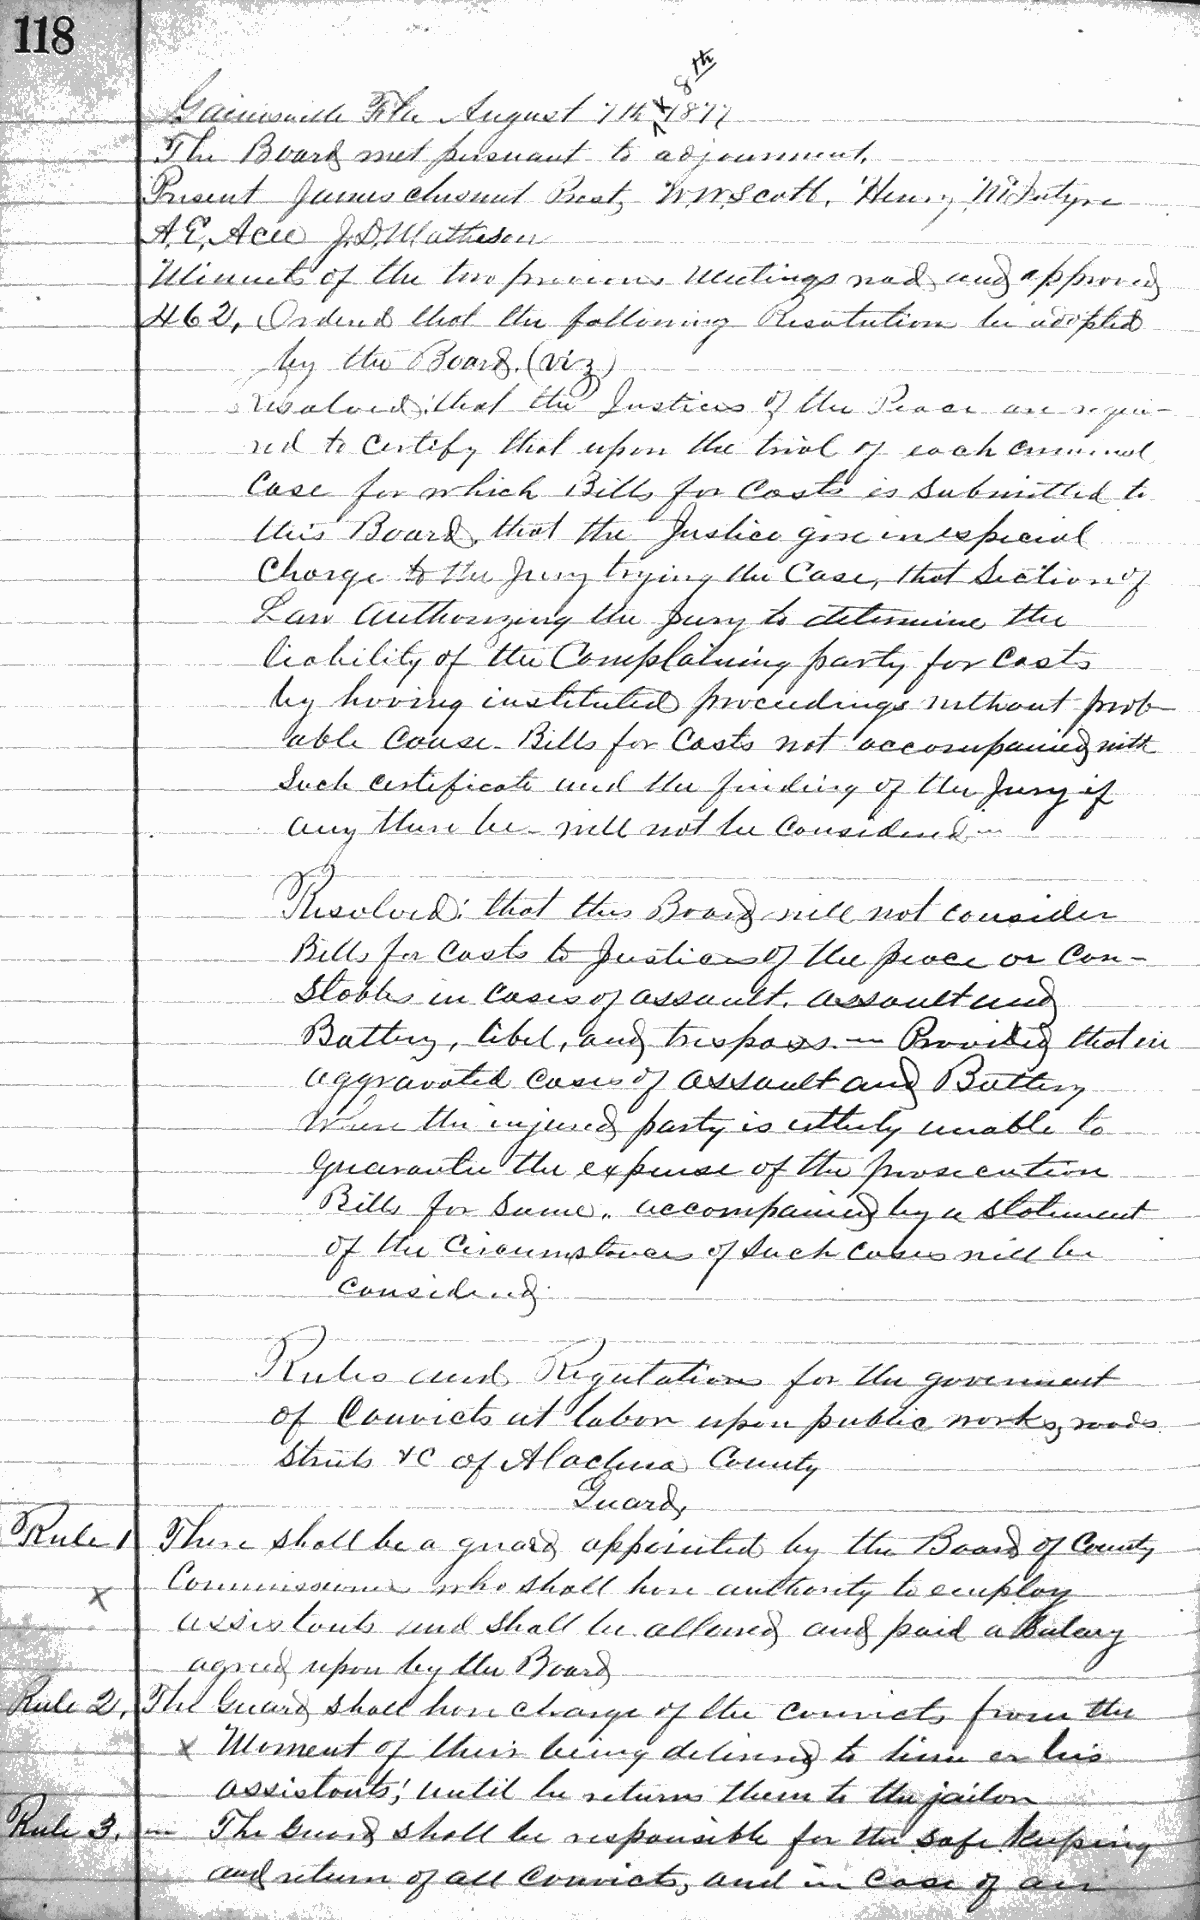 118
Gainesville Fla August 7th & 8th 1877
The Board met persuant to adjournment.
Present James Chesnut Prest, W.W. Scott, Henry McIntyre
A.E. Acee J.D. Matheson
Minuets of the two previous Meetings read and approved
462, Ordered that the following Resolution be adopted
by the Board. (viz)
Resolved: that the Justices of the Peace are requi-
red to certify that upon the trial of each criminal
Case for which Bills for Costs is submitted to
this Board, that the Justice give in especial
Charge to the Jury trying the Case, that Section of
Law Authorizing the Jury to determine the
liability of the Complaining party for Costs
by having instituted proceedings without prob-
able Cause. Bills for Costs not accompanied with
Such certificate and the finding of the Jury if
any there be will not be Considered
Resolved: that this Board will not consider
Bills for Costs to Justices of the peace or Con-
stables in Cases of assault, assault and
Battery, libel, and trespass. — Provided that in
aggravated cases of assault and Battery
When the injured party is utterly unable to
guarantee the expense of the prosecution
Bills for Same, accompanied by a Statement
of the Circumstances of Such Cases will be
considered.
Rules and Regulations for the goverment
of Convicts at labor upon public works, roads
Streets &C of Alachua County
Guard,
Rule 1 There shall be a guard appointed by the Board of County
Commissioners who shall have authority to employ
x assistants and shall be allowed and paid a Salary
agreed upon by the Board
Rule 2, The Guard shall have charge of the convicts from the
x Moment of their being delivered to him or his
assistants, until he returns them to the jailor
Rule 3. — The Guard shall be responsible for the safe keeping
and return of all Convicts, and in Case of an